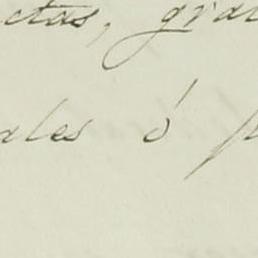 ctas, gra
ales ó p